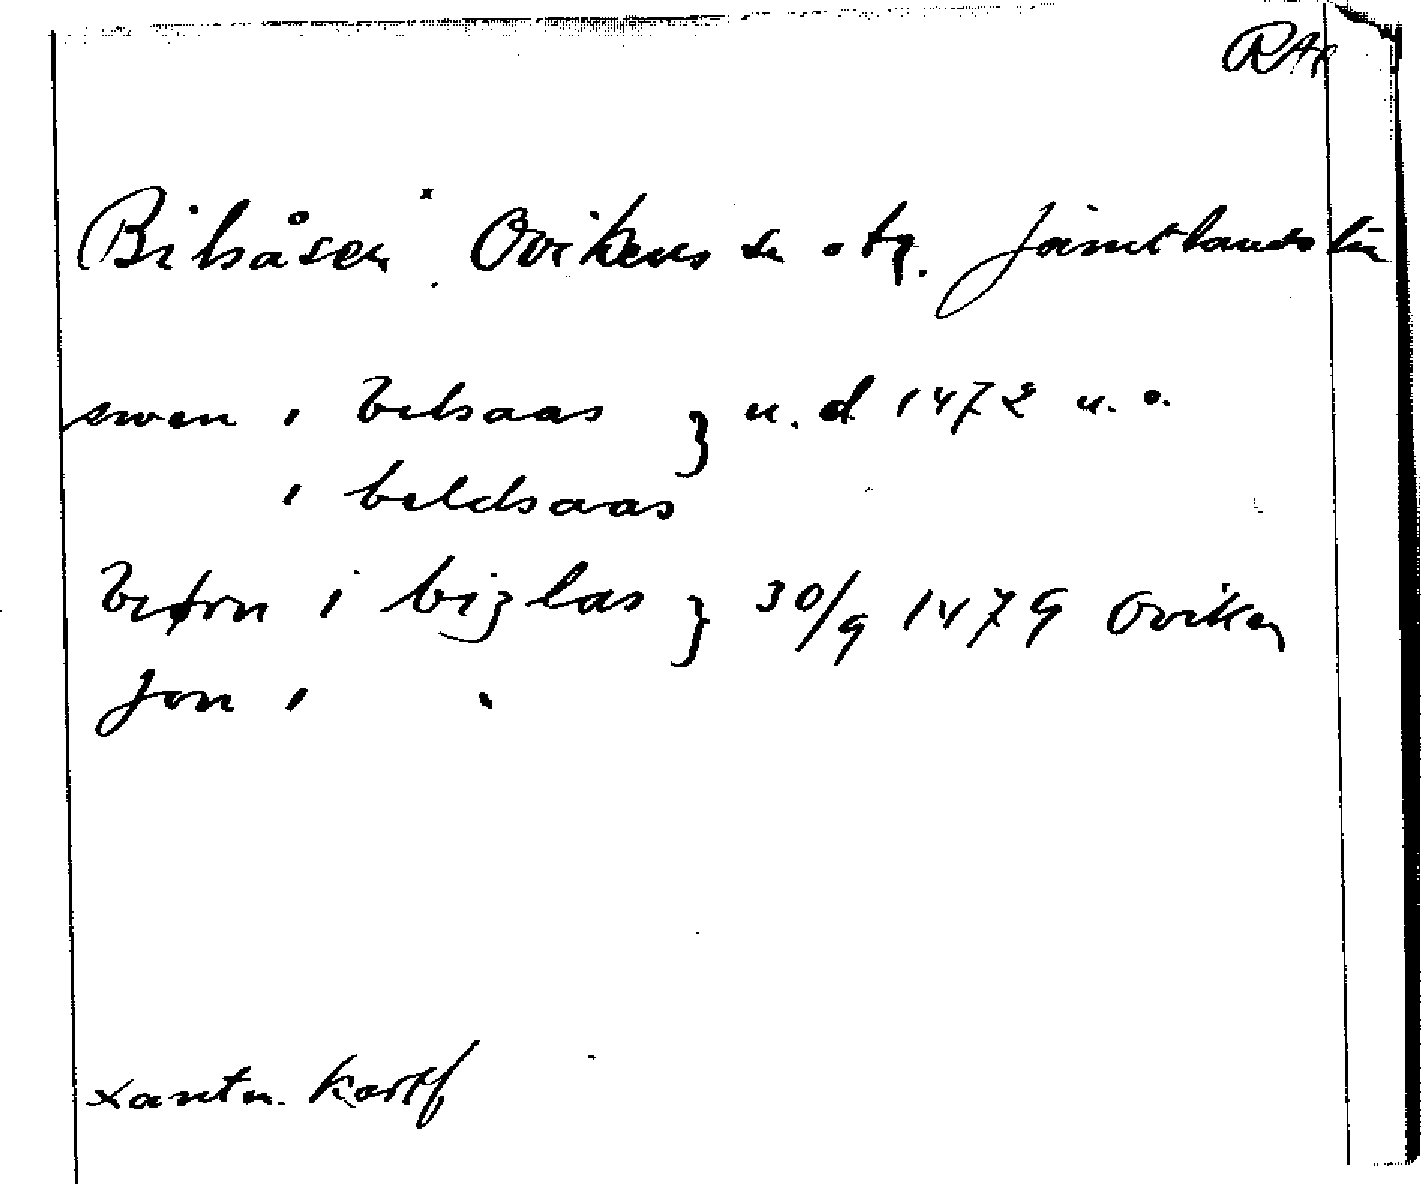 RAp
Bilsåsen x Ovikens sn o tg. Jämtlands län
swen i belsaas } u. d 1472 u. o.
i beldsaas
Biørn i bizlas } 30/9 1479 Oviken
Jon i "
x antn. Kartf